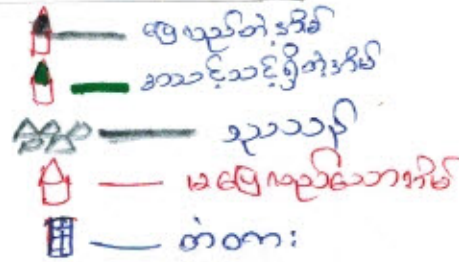 ပြေလည်တဲ့အိမ်
အသင့်သင့်ရှိတဲ့အိမ်
ဒုညသန်
မပြေလည်သောအိမ်
တံတား